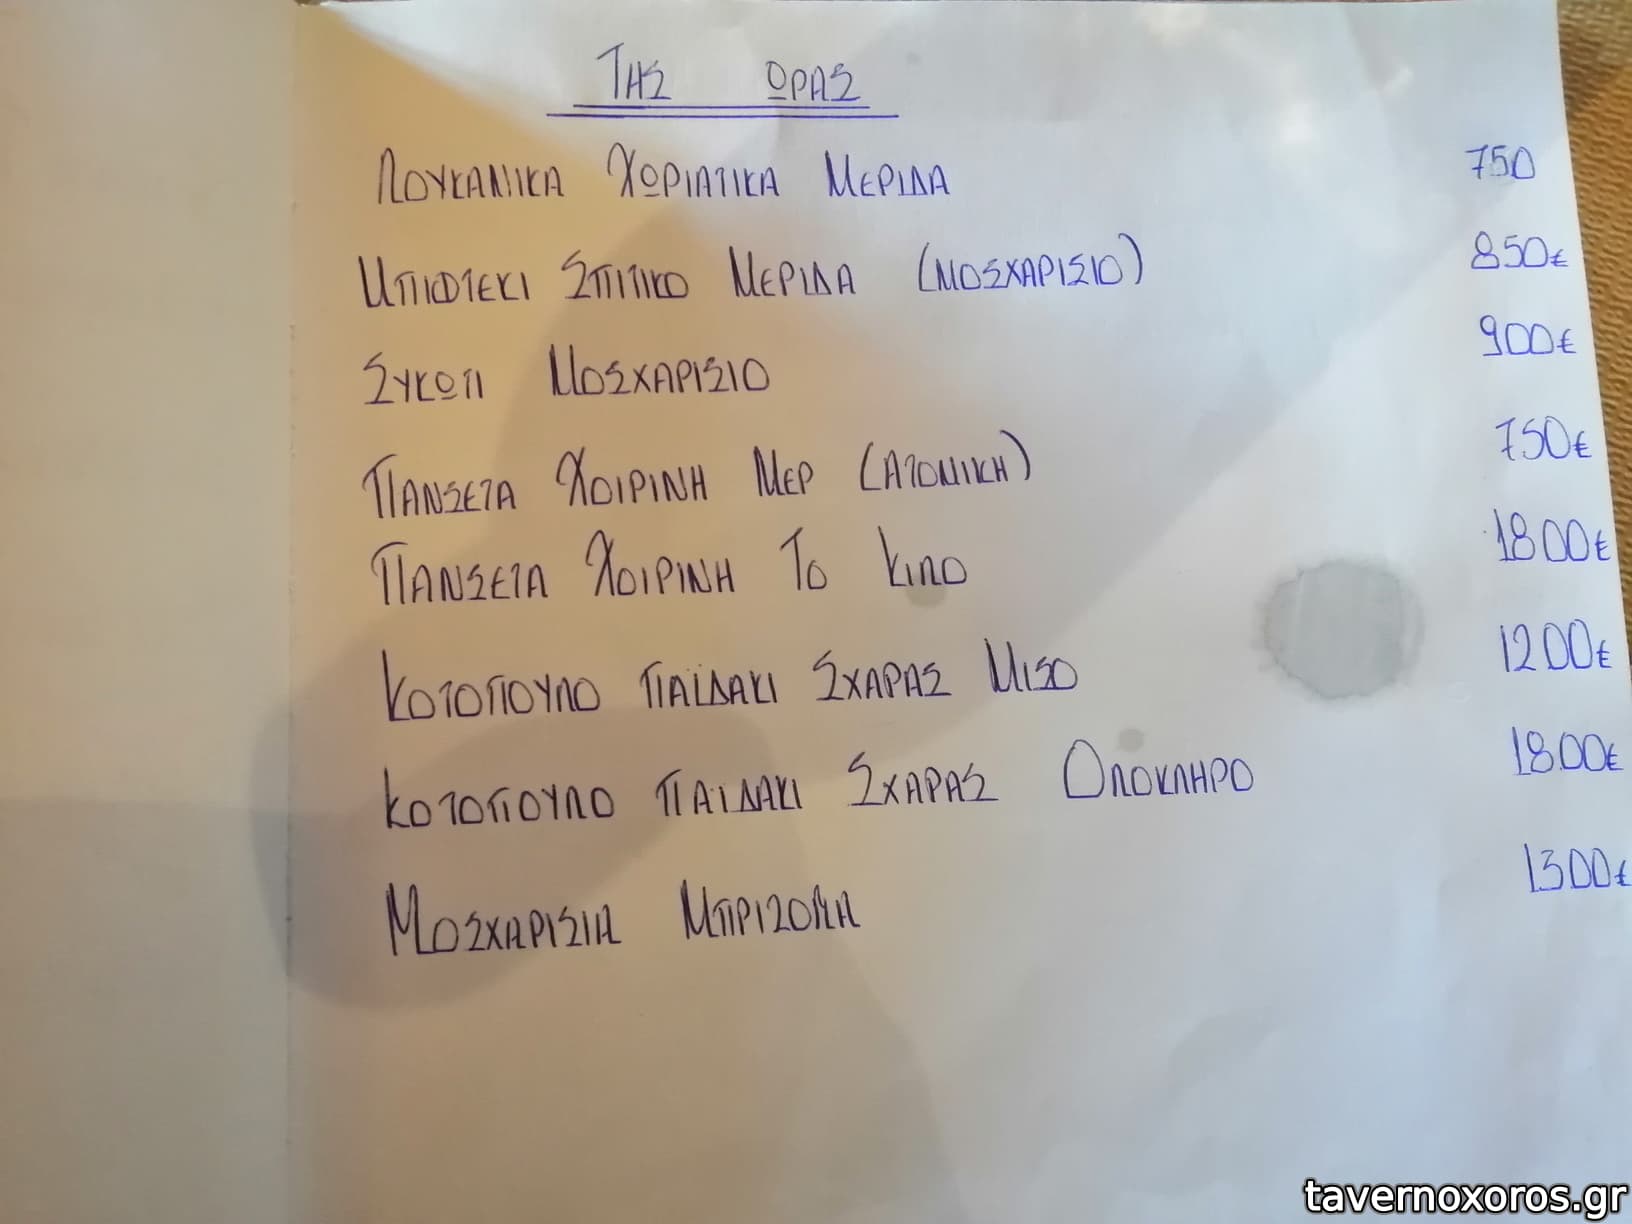 ΤΗΣ ΩΡΑΣ
ΛΟΥΚΑΝΙΚΑ ΧΩΡΙΑΤΙΚΑ ΜΕΡΙΔΑ 750
ΜΠΙΦΤΕΚΙ ΣΠΙΤΙΚΟ ΜΕΡΙΔΑ (ΜΟΣΧΑΡΙΣΙΟ) 850€
ΣΥΚΩΤΙ ΜΟΣΧΑΡΙΣΙΟ 900€
ΠΑΝΣΕΤΑ ΧΟΙΡΙΝΗ ΜΕΡ (ΑΤΟΜΙΚΗ) 750€
ΠΑΝΣΕΤΑ ΧΟΙΡΙΝΗ ΤΟ ΚΙΛΟ 1800€
ΚΟΤΟΠΟΥΛΟ ΠΑΪΔΑΚΙ ΣΧΑΡΑΣ ΜΙΣΟ 1200€
ΚΟΤΟΠΟΥΛΟ ΠΑΪΔΑΚΙ ΣΧΑΡΑΣ ΟΛΟΚΛΗΡΟ 1800€
ΜΟΣΧΑΡΙΣΙΑ ΜΠΡΙΖΟΛΑ 1300€
tavernoxoros.gr